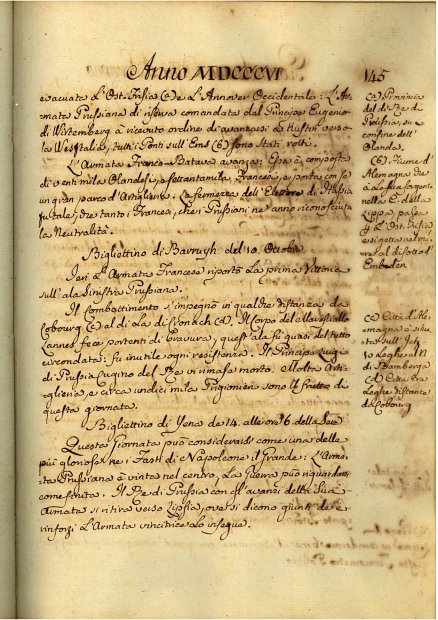 Anno MDCCCVI
145
evacuata L'Ost-Frisia (a) e L'Annover Occidentale: L'Ar-
mata Prussiana di riserva comandata dal Principe Eugenio
di Wirtemberg à ricevuto ordine di avanzarsi da Custrin verso
la Westfalia, tutti i Ponti sull'Ems (b) sono stati rotti.
L'Armata Franco-Batava avanza: Essa è composta
di venti mila Olandesi, e settantamila Francesi, e porta con se
un gran parco d'Artiglieria. La fermezza dell'Elettore di Hassia
fu tale; che tanto i Francesi, che i Prussiani ne anno riconosciuta
la Neutralità.
Bigliettino di del 10. Ottobre
Jeri L'Armata Francese riportò La prima Vittoria
sull'ala Sinistra Prussiana.
Il Combattimento s'impegnò in qualche distanza da
Cobourg (c) al di là di Cronach (d). Il Corpo del Maresciallo
Lannes fece portenti di bravura, quest'ala fu quasi del tutto
circondata: fu inutile ogni resistenza. Il Principe Luigi
di Prussia Cugino del Re vi rimase morto. Molta Arti-
glieria, e circa undici mila Prigionieri sono Il frutto di
questa giornata.
Bigliettino di Yena de' 14. alle ore 6 della Sera
Questa Giornata può considerarsi come una delle
più gloriose ne' i Fasti di Napoleone il Grande: L'Arma-
ta Prussiana è vinta nel centro, La Guerra può riguardarsi
come finita. Il Re di Prussia con gl'avanzi della Sua
Armata si ritira verso Lipsia, ove si dicono giunti de' i
rinforzi L'Armata vincitrice lo insegue.
(a) Provincia
del di Re di
Prussia, su
confine dell'
Olanda.
(b) Fiume d'
Alemagna che
à la sua sorgente
nella C. della
Lippa, passa
p L'Ost Frisia
e si getta nel ma-
re al di sotto d'
Embden
(c) Città d'Ale-
magna situa-
ta sull'
10 Leghe al N
di Bamberga
(d) Città
Leghe distante
da Cobourg